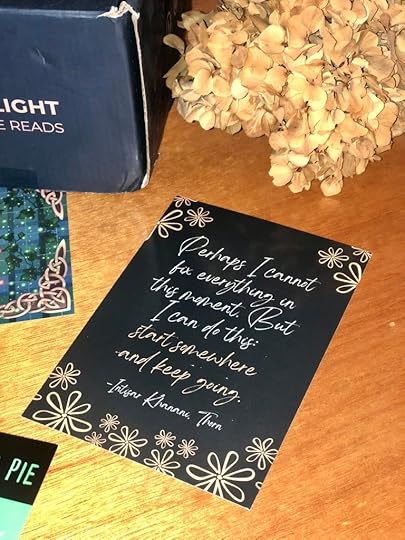 LIGHT
E READS
Perhaps I cannot
fix everything in
this moment. But
I can do this:
start somewhere
and keep going.
-Intisar Khanani, Thorn
PIE